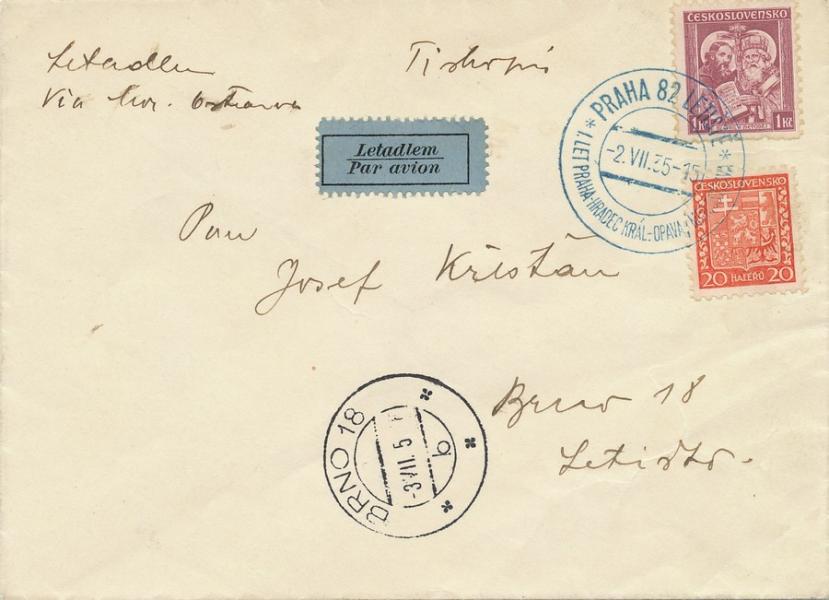 Letadlem
Via Mor. Ostrava
Tiskopis
Letadlem
Par avion
ČESKOSLOVENSKO
1 Kč 1 Kč
PRAHA 82 LETIŠTĚ
-2.VII.35-15
* I. LET PRAHA-HRADEC KRÁL.-OPAVA
ČESKOSLOVENSKO
20 HALÉŘŮ 20
Pan
Josef Křístán
Brno 18
Letiště.
BRNO 18
-3.VII.5
b